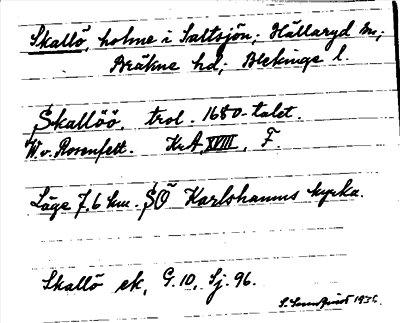 Skallö, holme i Saltsjön; Hällaryd sn;
Bräkne hd; Blekinge l.
Skallöö, trol. 1680-talet.
W. v. Rosenfelt. KrA, XVIII, F.
Läge 7,6 km. SÖ Karlshamns kyrka.
Skallö ek, G. 10, Sj. 96.
1936